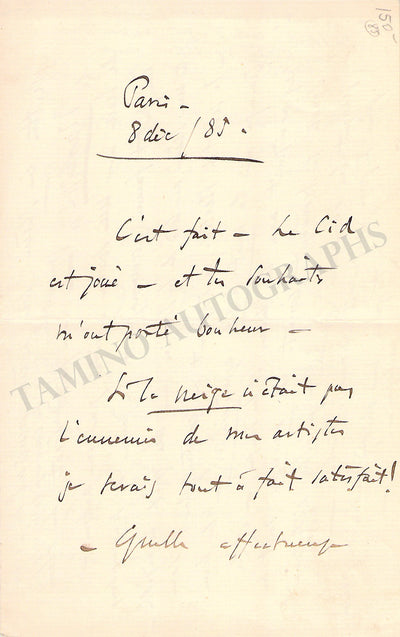 150-
85
Paris -
8 déc / 85.
C'est fait - Le Cid
est joué - et tes souhaits
m'ont porté bonheur -
Si la neige n'était pas
l'ennemie de mes artistes
je serais tout à fait satisfait!
- Quelle affectueuse
TAMINO AUTOGRAPHS